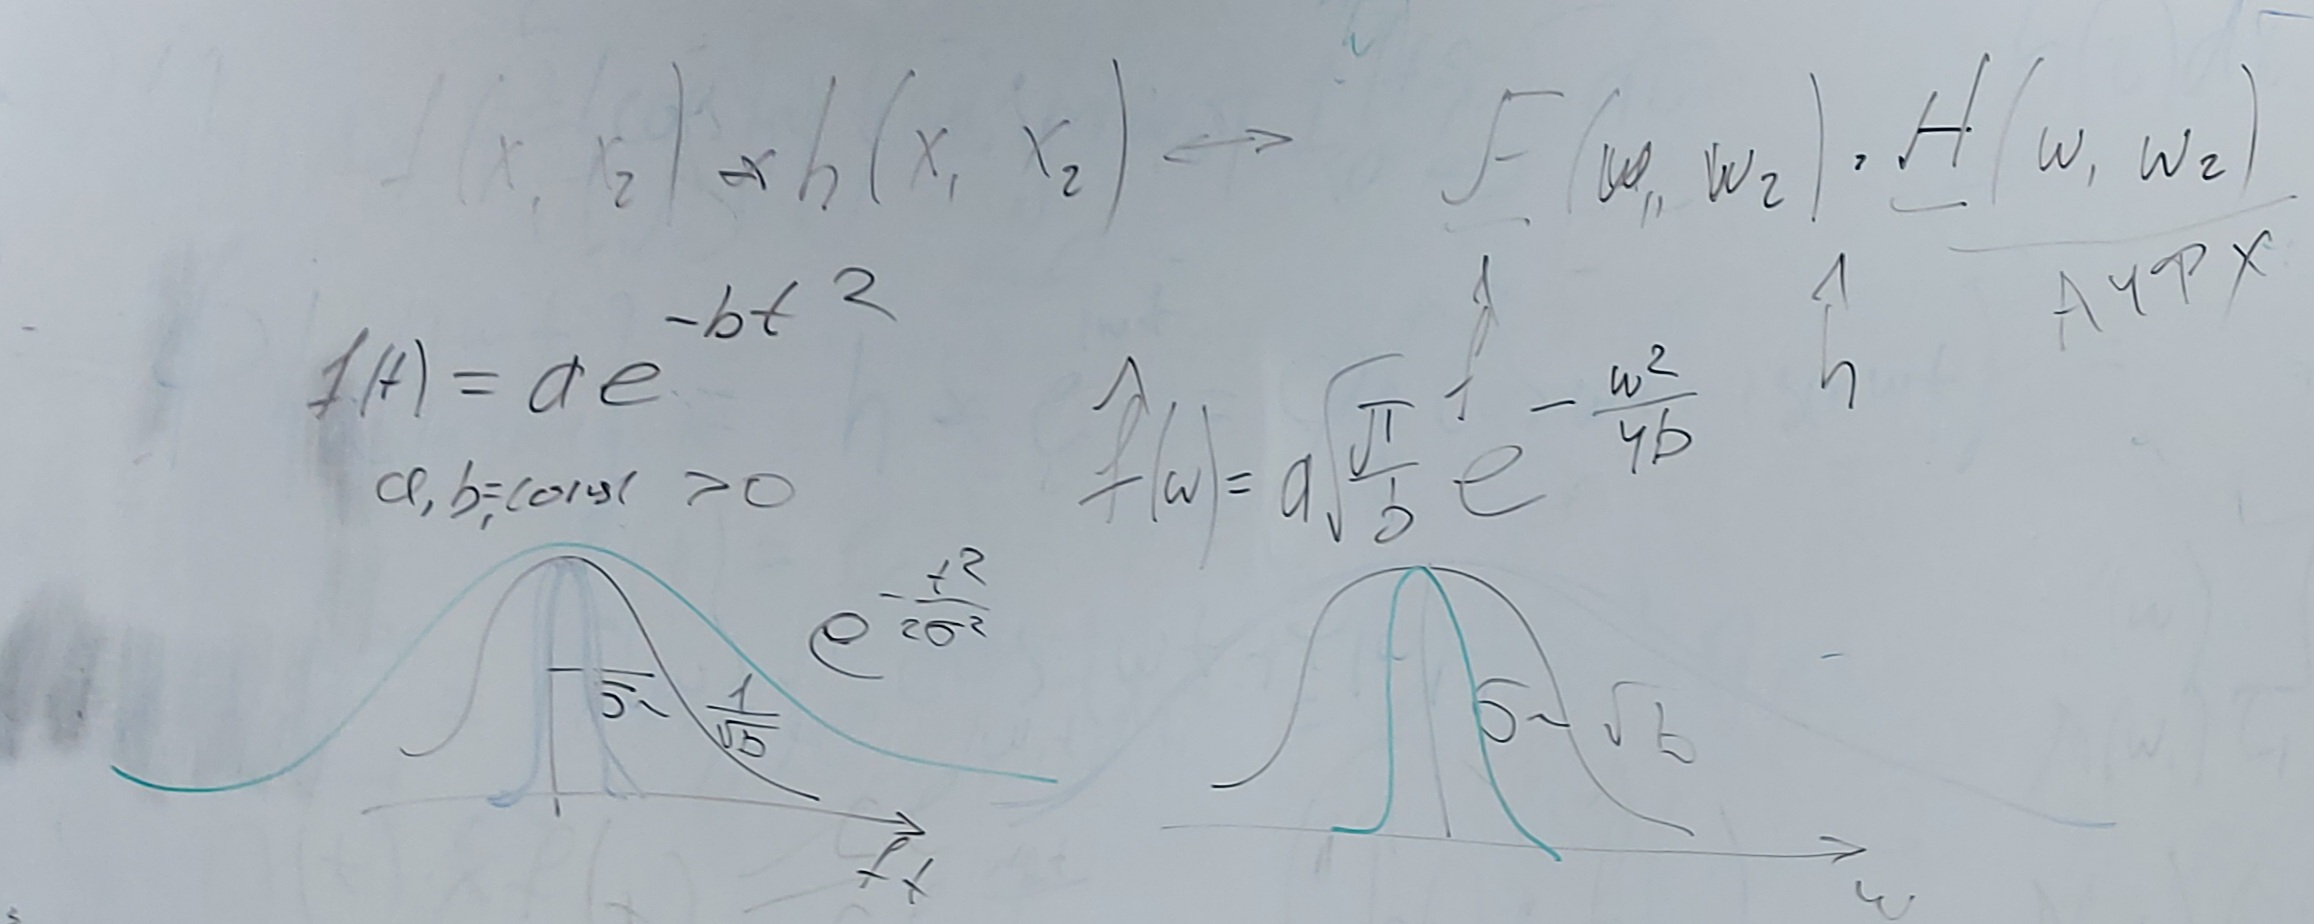 f(x₁ x₂) * h(x₁ x₂) ↔ F(w₁, w₂) · H(w₁ w₂)
АЧФХ
f(t) = a e^{-bt²}
f̂ ĥ
a, b = const > 0
f̂(w) = a √(π/b) e^{-w²/4b}
e^{-t²/2σ²}
σ ~ 1/√b
σ ~ √b
t
w